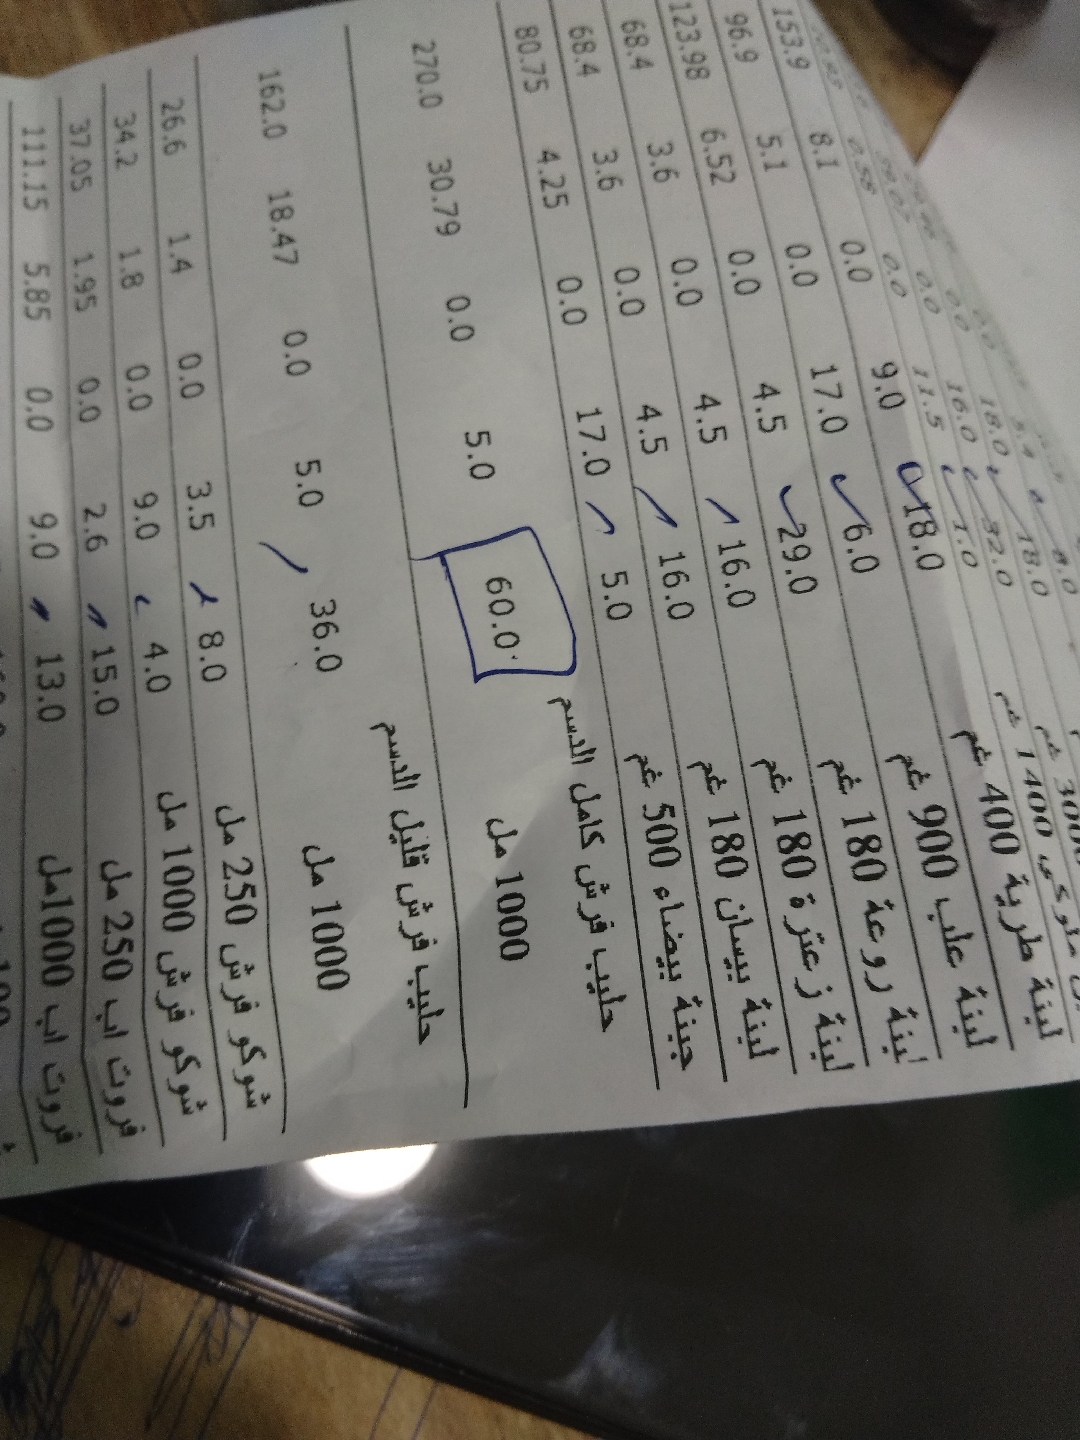 18.0 18.0 0.0
3000 32.0 16.0 0.0
ملوكي 1400 غم 1.0 11.5 0.0 0.58
لبنة طرية 400 غم 18.0 9.0 0.0 8.1 153.9
لبنة علب 900 غم 6.0 17.0 0.0 5.1 96.9
لبنة روعة 180 غم 29.0 4.5 0.0 6.52 123.98
لبنة زعترة 180 غم 16.0 4.5 0.0 3.6 68.4
لبنة بيسان 180 غم 16.0 4.5 0.0 3.6 68.4
جبنة بيضاء 500 غم 5.0 17.0 0.0 4.25 80.75
حليب فرش كامل الدسم
1000 مل 60.0 5.0 0.0 30.79 270.0
حليب فرش قليل الدسم
1000 مل 36.0 5.0 0.0 18.47 162.0
شوكو فرش 250 مل 8.0 3.5 0.0 1.4 26.6
شوكو فرش 1000 مل 4.0 9.0 0.0 1.8 34.2
فروت اب 250 مل 15.0 2.6 0.0 1.95 37.05
فروت اب 1000مل 13.0 9.0 0.0 5.85 111.15